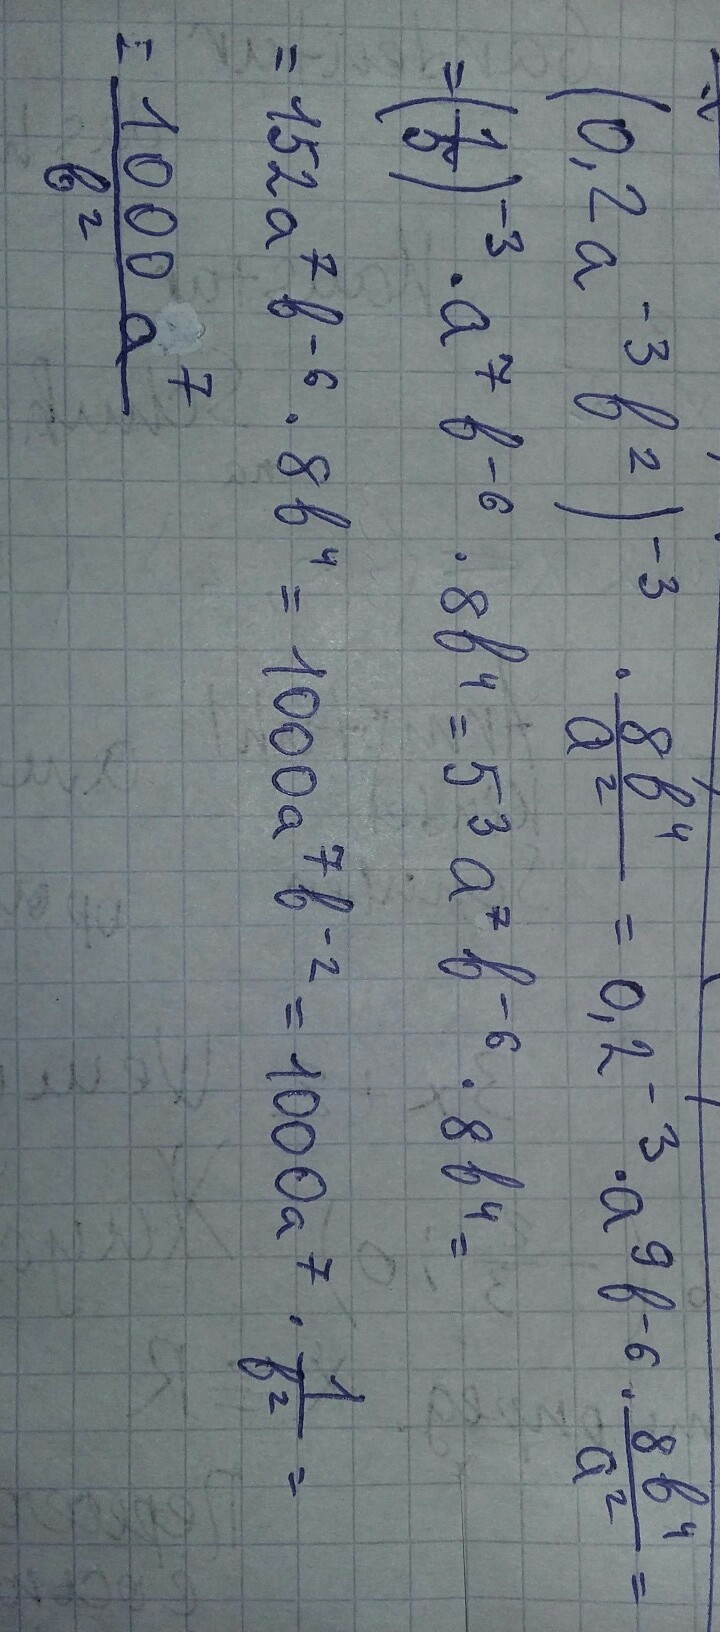 (0,2a⁻³b²)⁻³ · 8b⁴/a² = 0,2⁻³ · a⁹b⁻⁶ · 8b⁴/a² =
= (1/5)⁻³ · a⁷b⁻⁶ · 8b⁴ = 5³a⁷b⁻⁶ · 8b⁴ =
= 152a⁷b⁻⁶ · 8b⁴ = 1000a⁷b⁻² = 1000a⁷ · 1/b² =
= 1000a⁷/b²